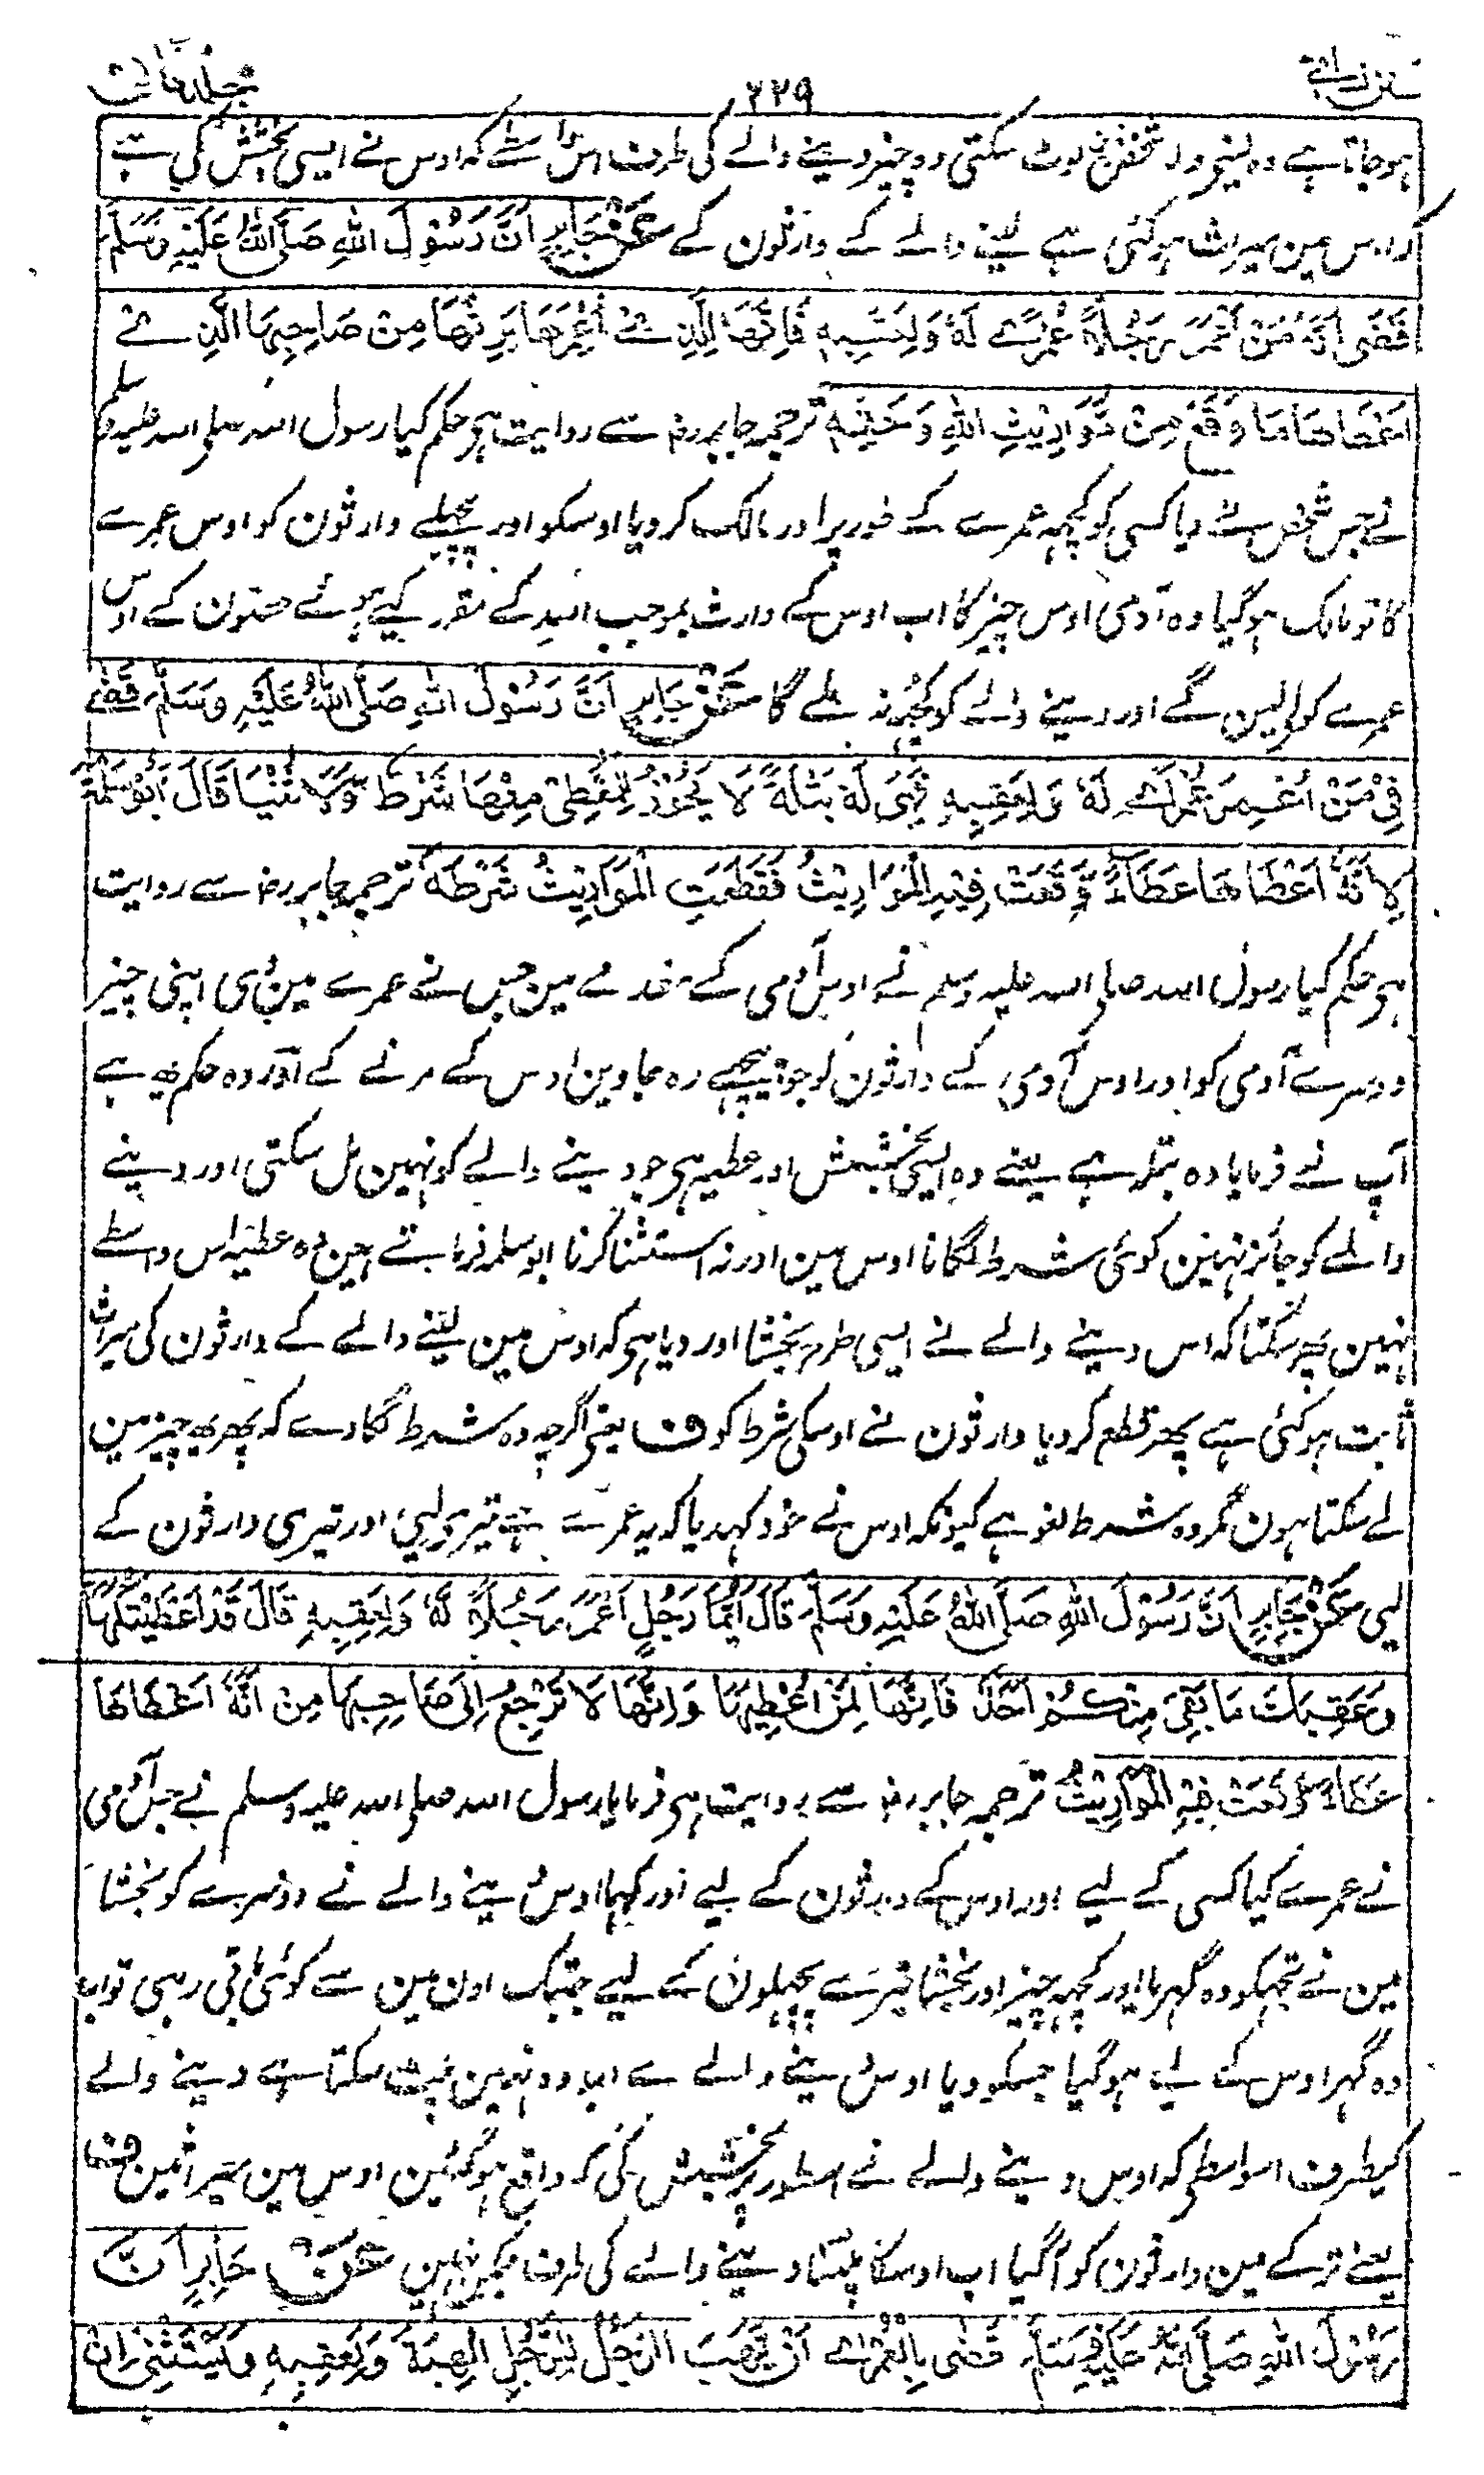 سنن نسائی ۲۲۹ جلد ثانی
ہوجاتا ہے وہ لینیوالا شخص نہیں لوٹ سکتی وہ چیز دینے والے کی طرف اس واسطے کہ اوس نے ایسی بخشش کی ہے
کہ اوس مین میراث ہوگئی ہے لینے والے کے وارثون کے عَنْ جَابِرٍ اَنَّ رَسُوْلَ اللهِ صَلَّى اللهُ عَلَيْهِ وَسَلَّمَ
قَضَى اَنَّهُ مَنْ اَعْمَرَ رَجُلًا عُمْرٰے لَهٗ وَلِعَقِبِهٖ فَاِنَّهَا لِلَّذِے اُعْمِرَهَا يَرِثُهَا مِنْ صَاحِبِهَا الَّذِے
اَعْطَاهَا مَا وَقَعَ مِنْ مَّوَارِيْثِ اللهِ وَحَقِّهٖ ترجمہ جابر رضہ سے روایت ہی حکم کیا رسول اللہ صلی اللہ علیہ وسلم
نے جس شخص نے دیا کسی کو کچہہ عمرے کے طور پر اور مالک کردیا اوسکو اور پچھلے وارثون کو اوس عمرے
کا تو مالک ہوگیا وہ آدمی اوس چیز کا اب اوس کے وارث بموجب اللہ کے مقرر کیے ہوئے حقون کے اوس
عمرے کو لے لین گے اور دینے والے کو کچھ نہ ملے گا عَنْ جَابِرٍ اَنَّ رَسُوْلَ اللهِ صَلَّى اللهُ عَلَيْهِ وَسَلَّمَ قَضٰے
فِيْ مَنْ اُعْمِرَ عُمْرٰے لَهٗ وَلِعَقِبِهٖ فَهِيَ لَهٗ بَتْلَةً لَا يَجُوْزُ لِلْمُعْطِيْ مِنْهَا شَرْطٌ وَّلَا ثُنْيَا قَالَ اَبُوْسَلَمَةَ
لِاَنَّهٗ اَعْطَاهَا عَطَاءً وَّقَعَتْ فِيْهِ الْمَوَارِيْثُ فَقَطَعَتِ الْمَوَارِيْثُ شَرْطَهٗ ترجمہ جابر رضہ سے روایت
ہی حکم کیا رسول اللہ صلی اللہ علیہ وسلم نے اوس آدمی کے مقدمے مین جس نے عمرے مین دی اپنی چیز
دوسرے آدمی کو اور اوس آدمی کے وارثون کو جو پیچھے رہ جاوین اوس کے مرنے کے اور وہ حکم یہ ہے
آپ نے فرمایا وہ بتلہ ہے یعنے وہ ایسی بخشش اور عطیہ ہی جو دینے والے کو نہین مل سکتی اور دینے
والے کو جائز نہین کوئی شرط لگانا اوس مین اور نہ استثنا کرنا ابو سلمہ فرماتے ہین وہ عطیہ اس واسطے
نہین پھر سکتا کہ اس دینے والے نے ایسی طرح بخشا اور دیا ہی کہ اوس مین لینے والے کے وارثون کی میراث
ثابت ہوگئی ہے پھر قطع کردیا وارثون نے اوسکی شرط کو ف یعنی اگرچہ وہ شرط لگا دے کہ پھر یہ چیز مین
لے سکتا ہون مگر وہ شرط لغو ہے کیونکہ اوس نے خود کہدیا کہ یہ عمرے ہے تیری لیی اور تیری وارثون کے
لیی عَنْ جَابِرٍ اَنَّ رَسُوْلَ اللهِ صَلَّى اللهُ عَلَيْهِ وَسَلَّمَ قَالَ اَيُّمَا رَجُلٍ اَعْمَرَ رَجُلًا لَهٗ وَلِعَقِبِهٖ قَالَ قَدْ اَعْطَيْتُكَهَا
وَعَقِبَكَ مَا بَقِيَ مِنْكُمْ اَحَدٌ فَاِنَّهَا لِمَنْ اُعْطِيَهَا وَاِنَّهَا لَا تَرْجِعُ اِلٰى صَاحِبِهَا مِنْ اَنَّهٗ اَعْطَاهَا
عَطَاءً وَّقَعَتْ فِيْهِ الْمَوَارِيْثُ ترجمہ جابر رضہ سے روایت ہی فرمایا رسول اللہ صلی اللہ علیہ وسلم نے جس آدمی
نے عمرے کیا کسی کے لیے اور اوس کے وارثون کے لیے اور کہا اوس دینے والے نے دوسرے کو بخشا
مین نے تجہکو وہ گہر یا اور کچہہ چیز اور بخشا تیرے پچھلون کے لیے جبتک اون مین سے کوئی باقی رہی تو اب
وہ گہر اوس کے لیے ہوگیا جسکو دیا اوس دینے والے نے اب وہ نہین پلٹ سکتا ہے دینے والے
کیطرف اسواسطی کہ اوس دینے والے نے اسطور پر بخشش کی کہ واقع ہوگئین اوس مین میراثین ف
یعنے ترکے مین وارثون کو آگیا اب اوسکا پلٹنا دینے والے کی طرف ممکن نہین عَنْ جَابِرٍ اَنَّ
رَسُوْلَ اللهِ صَلَّى اللهُ عَلَيْهِ وَسَلَّمَ قَضٰى بِالْعُمْرٰے اَنْ يَّهَبَ الرَّجُلُ لِلرَّجُلِ الْهِبَةَ وَلِعَقِبِهٖ وَيَسْتَثْنِيَ اِنْ